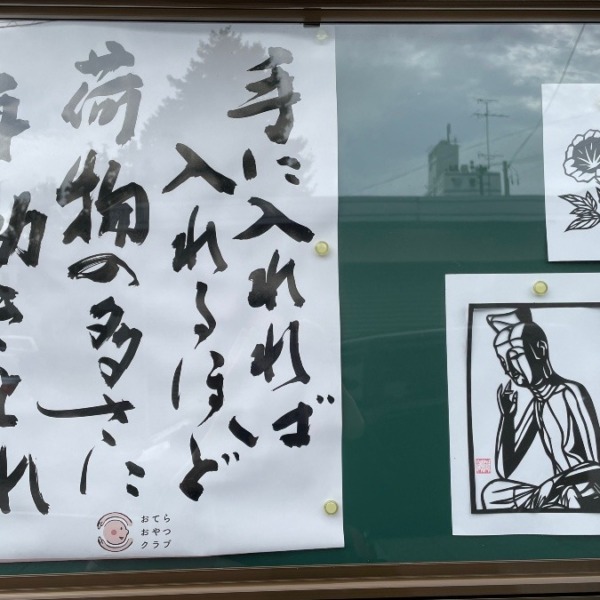 手に入れれば
入れるほど
荷物の多さに
身動きとれ
おてら
おやつ
クラブ